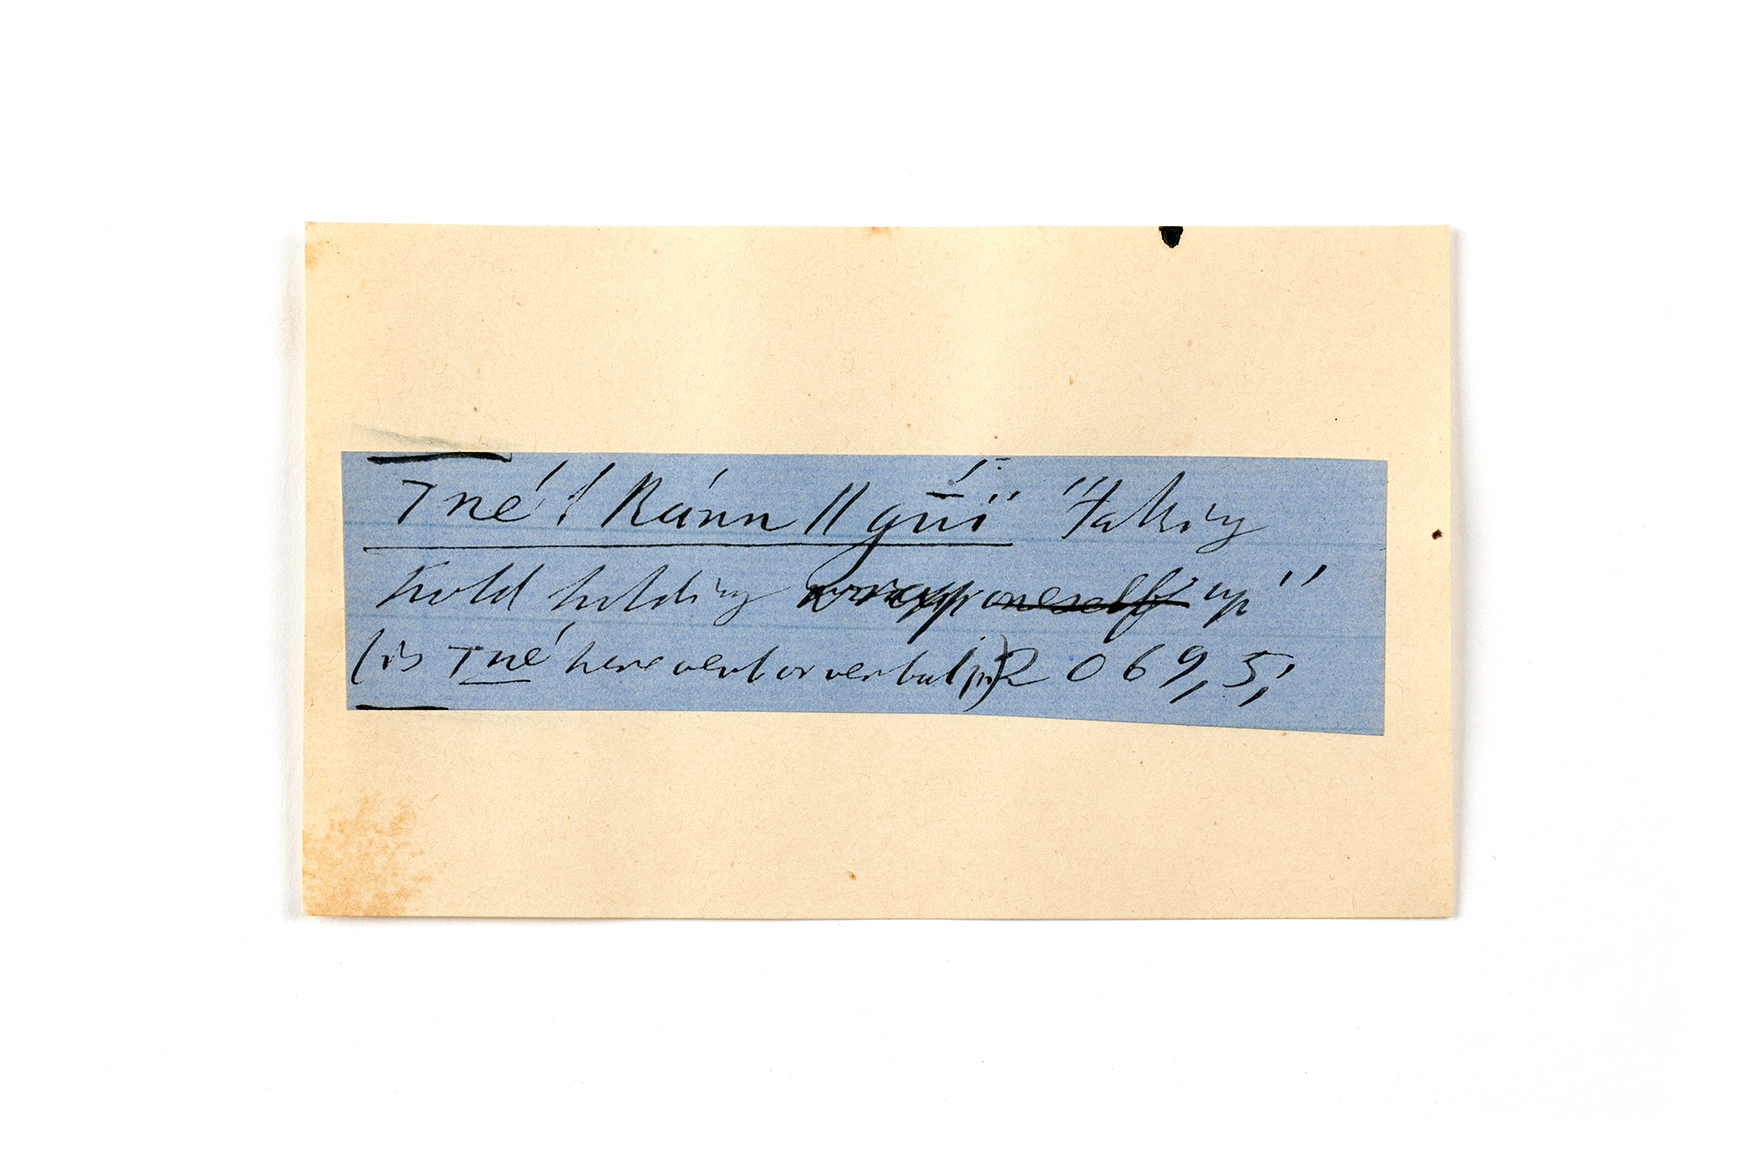 Tné ! kánn ǁgúï "Taking
hold holding wrapp oneself up"
(is Tné here verb or verbal pr) 2069,5;